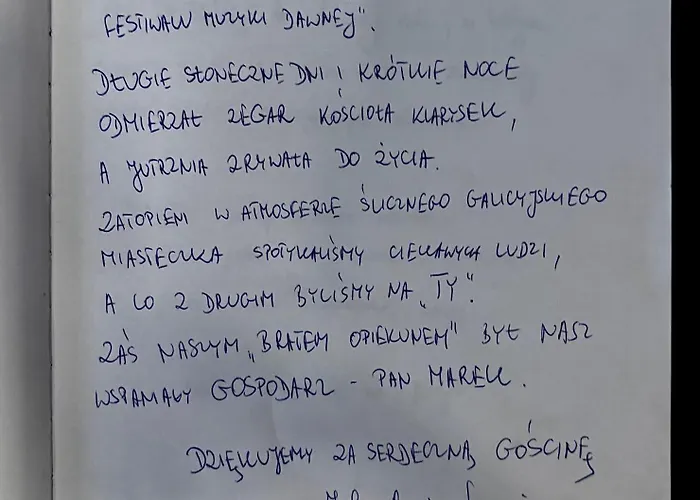 FESTIWALU MUZYKI DAWNEJ".
DŁUGIE SŁONECZNE DNI I KRÓTKIE NOCE
ODMIERZAŁ ZEGAR KOŚCIOŁA KLARYSEK,
A JUTRZNIA ZRYWAŁA DO ŻYCIA.
ZATOPIENI W ATMOSFERZE ŚLICZNEGO GALICYJSKIEGO
MIASTECZKA SPOTYKALIŚMY CIEKAWYCH LUDZI,
A CO Z DRUGIM BYLIŚMY NA „TY".
ZAŚ NASZYM „BRATEM OPIEKUNEM" BYŁ NASZ
WSPANIAŁY GOSPODARZ - PAN MAREK.
DZIĘKUJEMY ZA SERDECZNĄ GOŚCINĘ